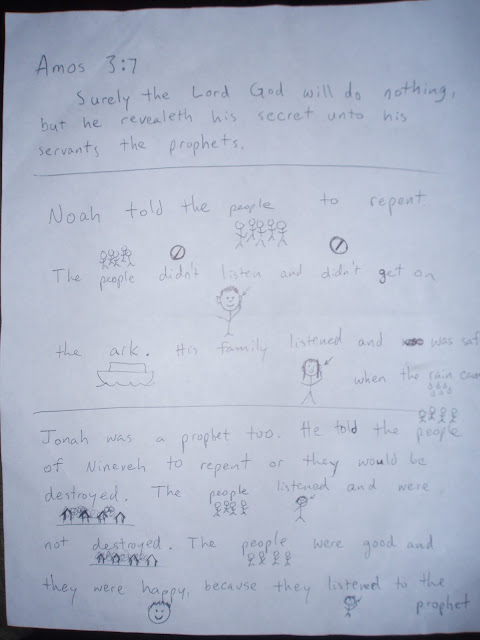 Amos 3:7
Surely the Lord God will do nothing,
but he revealeth his secret unto his
servants the prophets.
Noah told the people to repent.
The people didn't listen and didn't get on
the ark. His family listened and was saf
when the rain cam
Jonah was a prophet too. He told the people
of Nineveh to repent or they would be
destroyed. The people listened and were
not destroyed. The people were good and
they were happy, because they listened to the
prophet